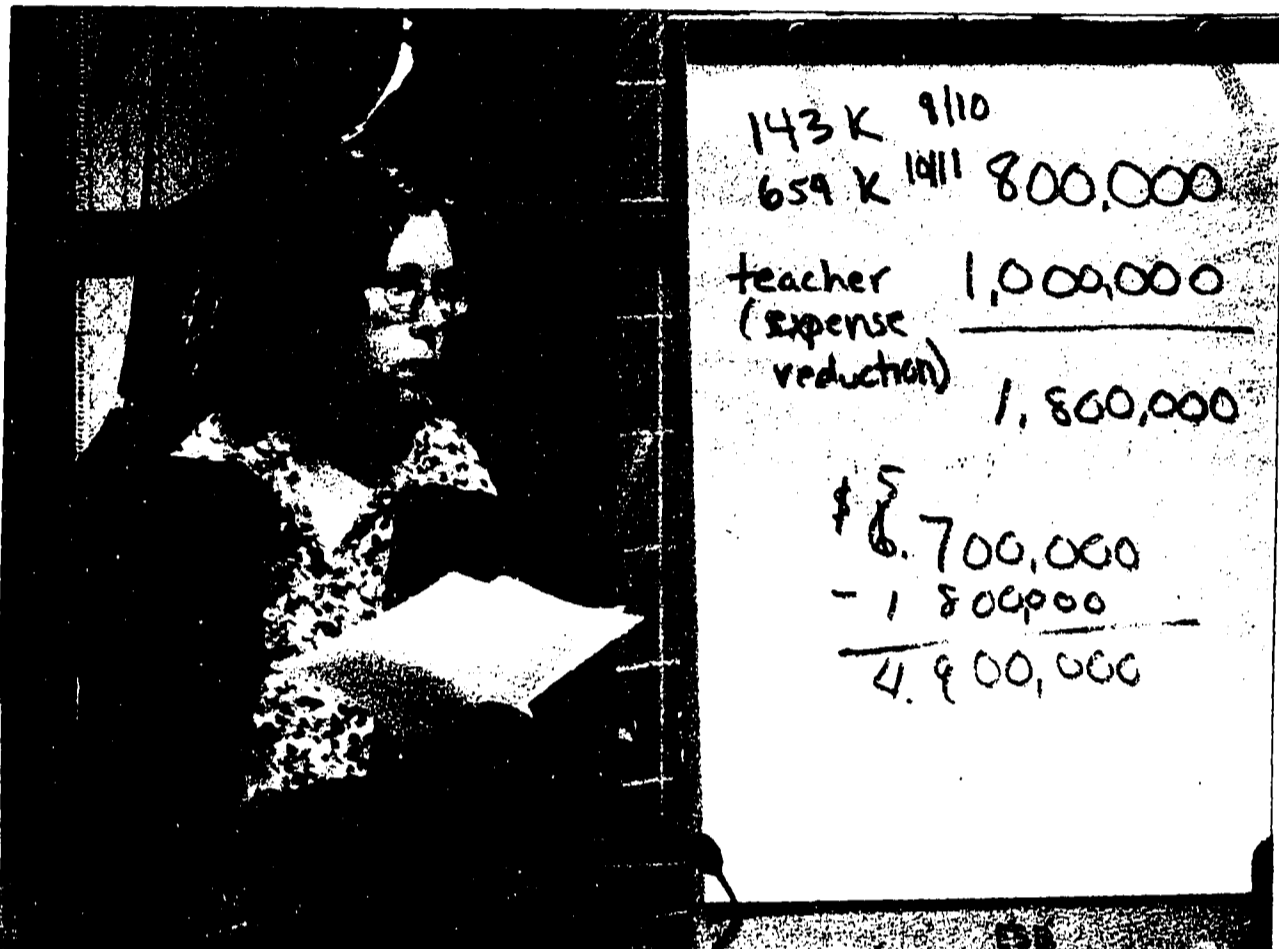 143 K 9/10
659 K 10/11 800,000
teacher 1,000,000
(expense
reduction)
1,800,000
5
$ 6.700,000
- 1 800,000
4.900,000